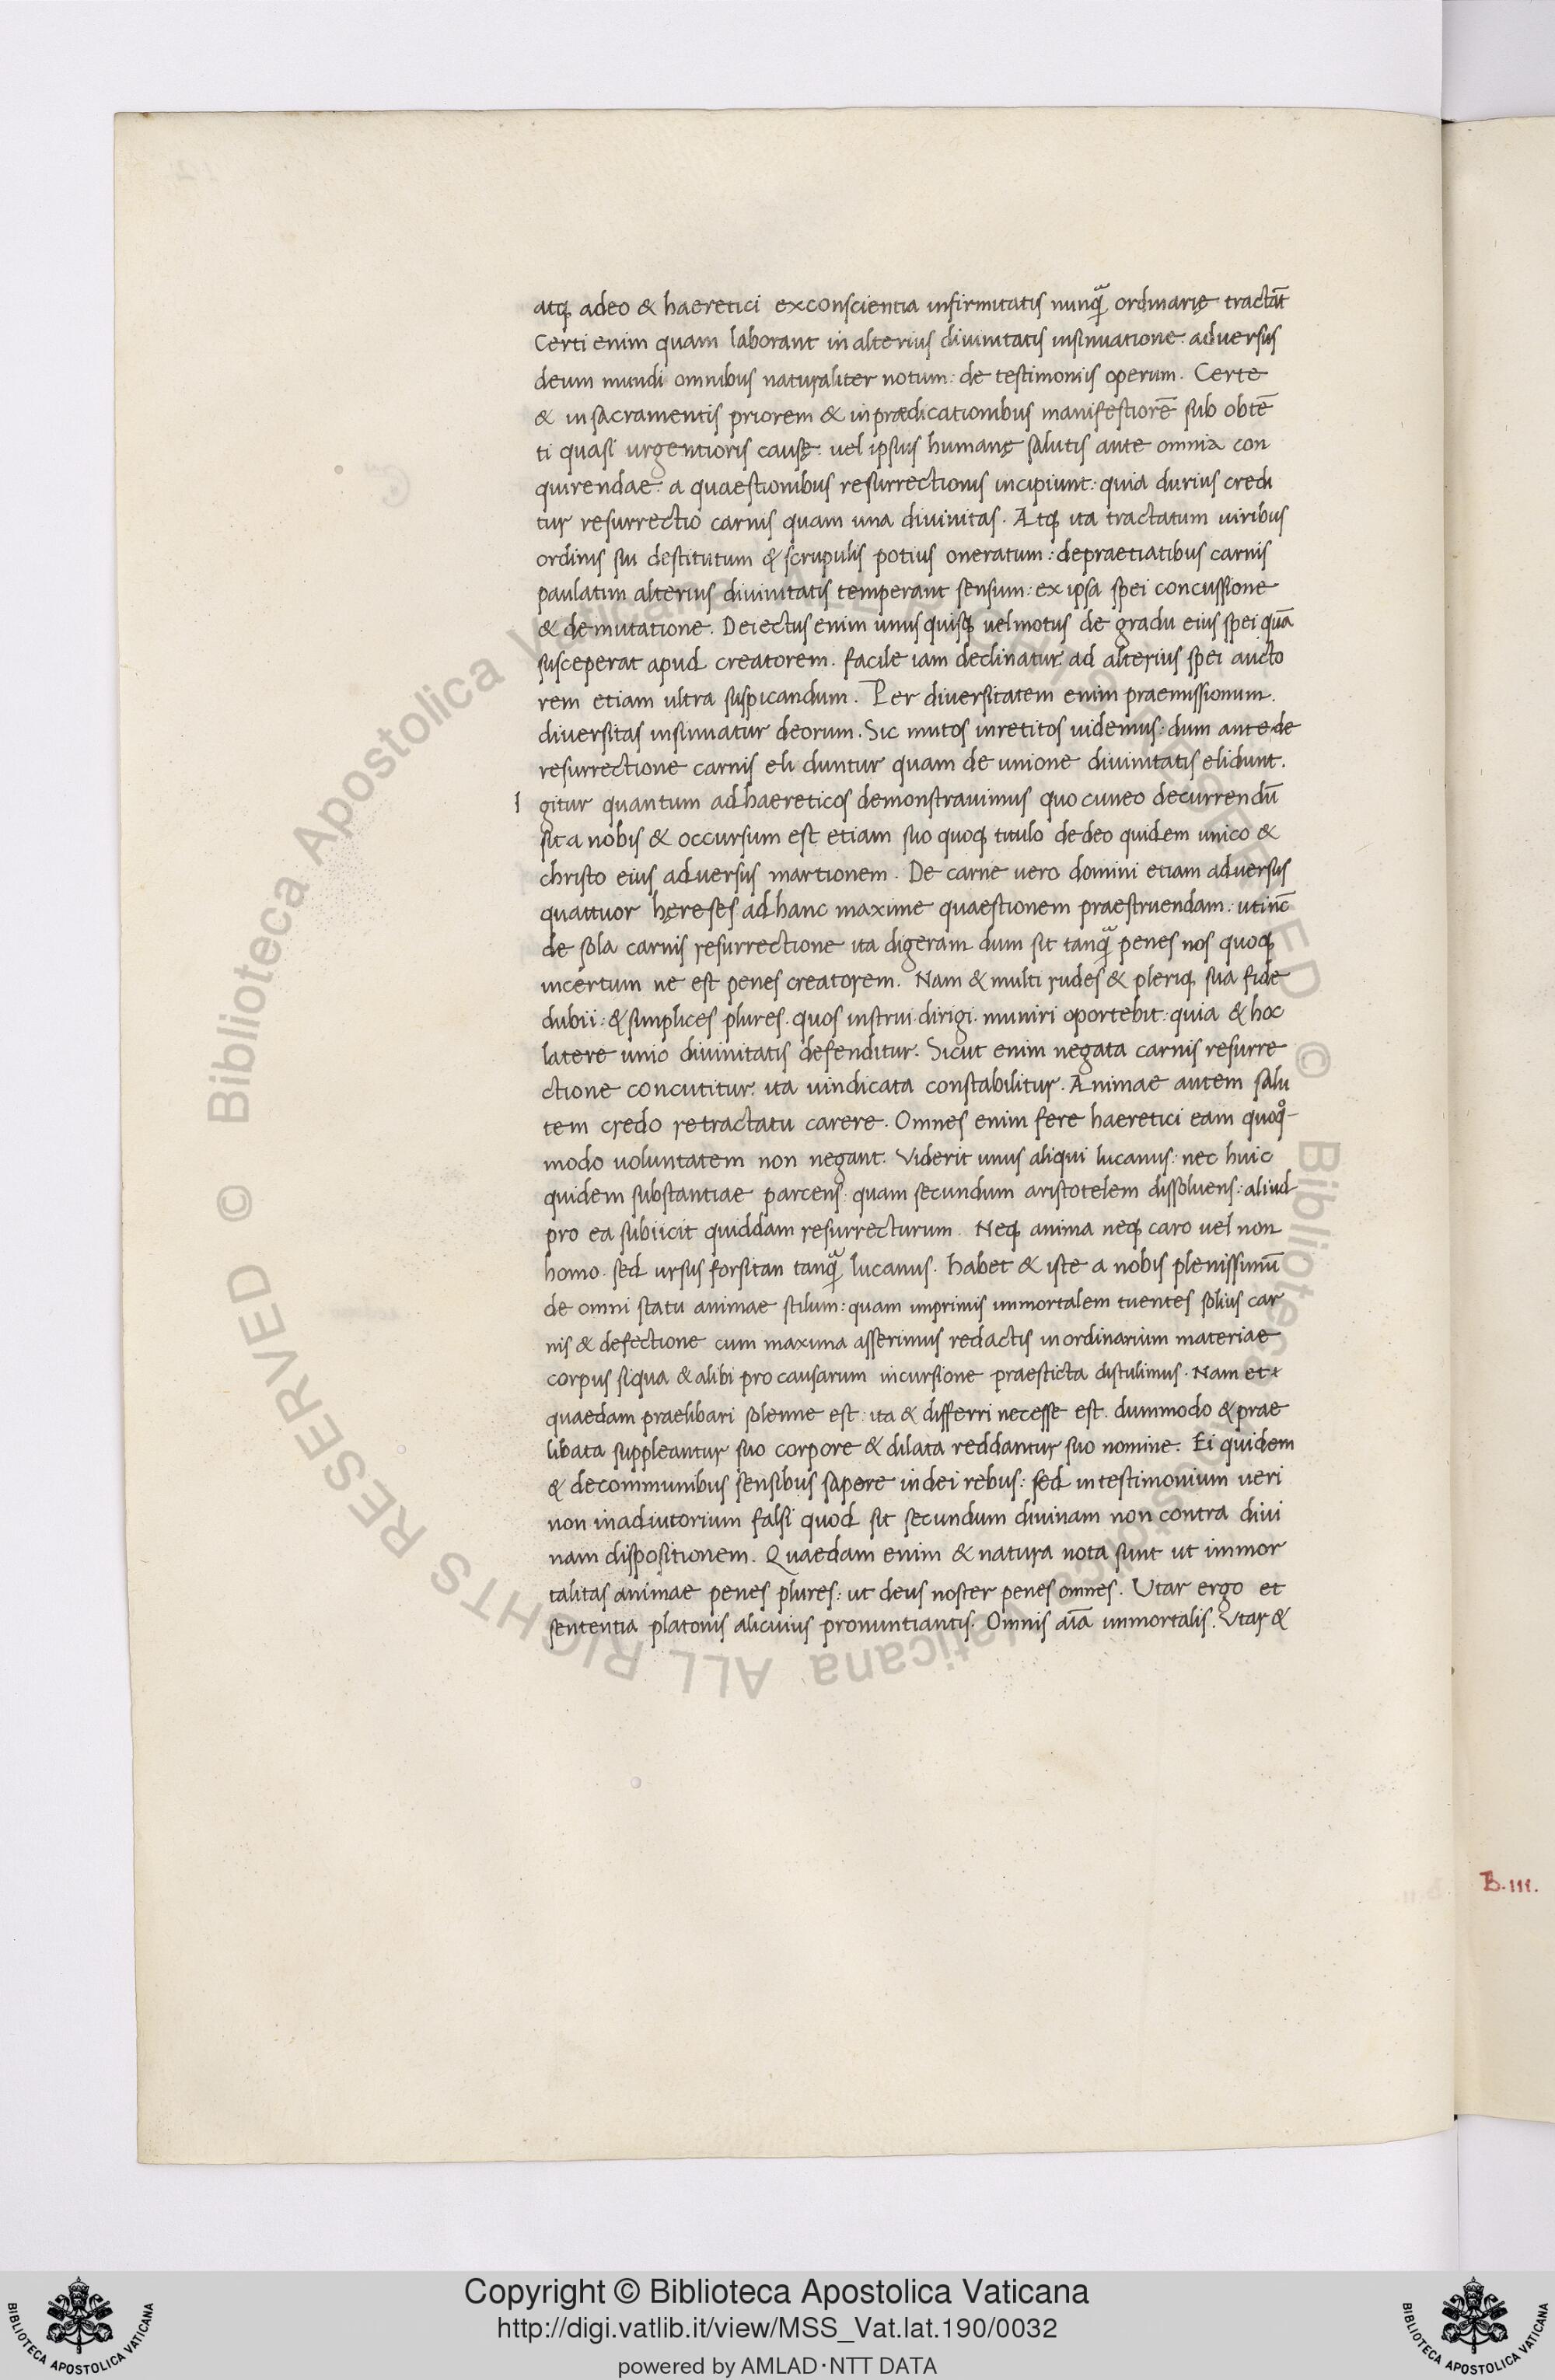 atq adeo & haeretici exconscientia infirmitatis nunq̃ ordinarię tractāt
Certi enim quam laborant in alterius divinitatis insinuatione: adversus
deum mundi omnibus naturaliter notum: de testimoniis operum. Certe
& in sacramentis priorem & inprædicationibus manifestiorē sub obtē
ti quasi urgentioris causę: uel ipsius humanę salutis ante omnia con
quirendae: a quaestionibus resurrectionis incipiunt: quia durius credi
tur resurrectio carnis quam una divinitas. Atq ita tractatum uiribus
ordinis sui destitutum & scrupulis potius oneratum: depraetiatibus carnis
paulatim alterius divinitatis temperant sensum: ex ipsa spei concussione
& demutatione. Deiectus enim unus quisq uel motus de gradu eius spei quā
susceperat apud creatorem. facile iam declinatur ad alterius spei aucto
rem etiam ultra suspicandum. Per diversitatem enim praemissionum.
diversitas insinuatur deorum. Sic mutos inretitos uidemus: dum ante de
resurrectione carnis eli duntur quam de unione divinitatis elidunt.
I gitur quantum ad haereticos demonstravimus quo cuneo decurrendū
sit a nobis & occursum est etiam suo quoq titulo de deo quidem unico &
christo eius adversus martionem. De carne uero domini etiam adversus
quattuor hęreses ad hanc maxime quaestionem praestruendam: uti nc̄
de sola carnis resurrectione ita digeram dum sit tanq̃ penes nos quoq
incertum ne est penes creatorem. Nam & multi rudes & pleriq sua fide
dubii: & simplices plures. quos instrui dirigi. muniri oportebit: quia & hoc
latere unio divinitatis defenditur. Sicut enim negata carnis resurre
ctione concutitur. ita uindicata constabilitur. Animae autem salu
tem credo retractatu carere. Omnes enim fere haeretici eam quoq°-
modo uoluntatem non negant. Viderit unus aliqui lucanus: nec huic
quidem substantiae parcens: quam secundum aristotelem dissoluens: aliud
pro ea subiicit quiddam resurrecturum. Neq anima neq caro uel non
homo. sed ursus forsitan tanq̃ lucanus. habet & iste a nobis plenissimū
de omni statu animae stilum: quam imprimis immortalem tuentes solius car
nis & defectione cum maxima asserimus redactis in ordinarium materiae
corpus siqua & alibi pro causarum incursione praesticta distulimus. Nam et
quaedam praelibari solenne est: ita & differri necesse est. dummodo & prae
libata suppleantur suo corpore & dilata reddantur suo nomine. Ei quidem
& decommunibus sensibus sapere in dei rebus: sed in testimonium ueri
non inadiutorium falsi quod sit secundum divinam non contra divi
nam dispositionem. Quaedam enim & natura nota sunt ut immor
talitas animae penes plures: ut deus noster penes omnes. Utar ergo et
sententia platonis alicuius pronuntiantis. Omnis aīa immortalis. Vtar &
B.III.
Copyright © Biblioteca Apostolica Vaticana
http://digi.vatlib.it/view/MSS_Vat.lat.190/0032
powered by AMLAD·NTT DATA
BIBLIOTECA APOSTOLICA VATICANA
BIBLIOTECA APOSTOLICA VATICANA
© Biblioteca Apostolica Vaticana ALL RIGHTS RESERVED
© Biblioteca Apostolica Vaticana ALL RIGHTS RESERVED